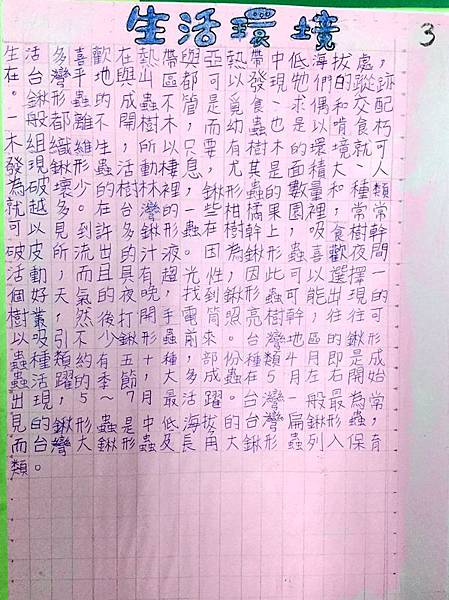 生活環境
3
生活多喜歡在熱帶與亞熱帶中低海拔處，
在台灣平地與山區都可以發現牠們的蹤跡
。鍬形蟲的成蟲不管是覓食、求偶和交配
一般都離不開樹木，而幼蟲也以啃食朽
木組織維生，所以只要有樹木的環境就可
發現鍬形蟲活動棲息，尤其是面積大、人
為破壞少的樹林裡，鍬形蟲的數量和種類
就越多。在台灣的一些柑橘果園裡，常常
可以見到許多鍬形蟲在樹幹上，吸食樹幹
破皮所流出的汁液。因為鍬形蟲喜歡夜間
活動，而且具有超光性，因此可以選擇一
個好天氣的夜晚，找到鍬形蟲可能出現的
樹叢，然後打開手電筒照亮樹幹，往往可
以吸引不少鍬形蟲前來。台灣地區的鍬形
蟲種類約有五十種，部份種類4月即是成
蟲活躍的季節，大多成蟲在5月左右開始
出現，5～7月最活躍。台灣一般最為常
見的鍬形蟲是中低海拔的台灣扁鍬形蟲，
而台灣大鍬形蟲及長角大鍬形蟲列入保有
類。